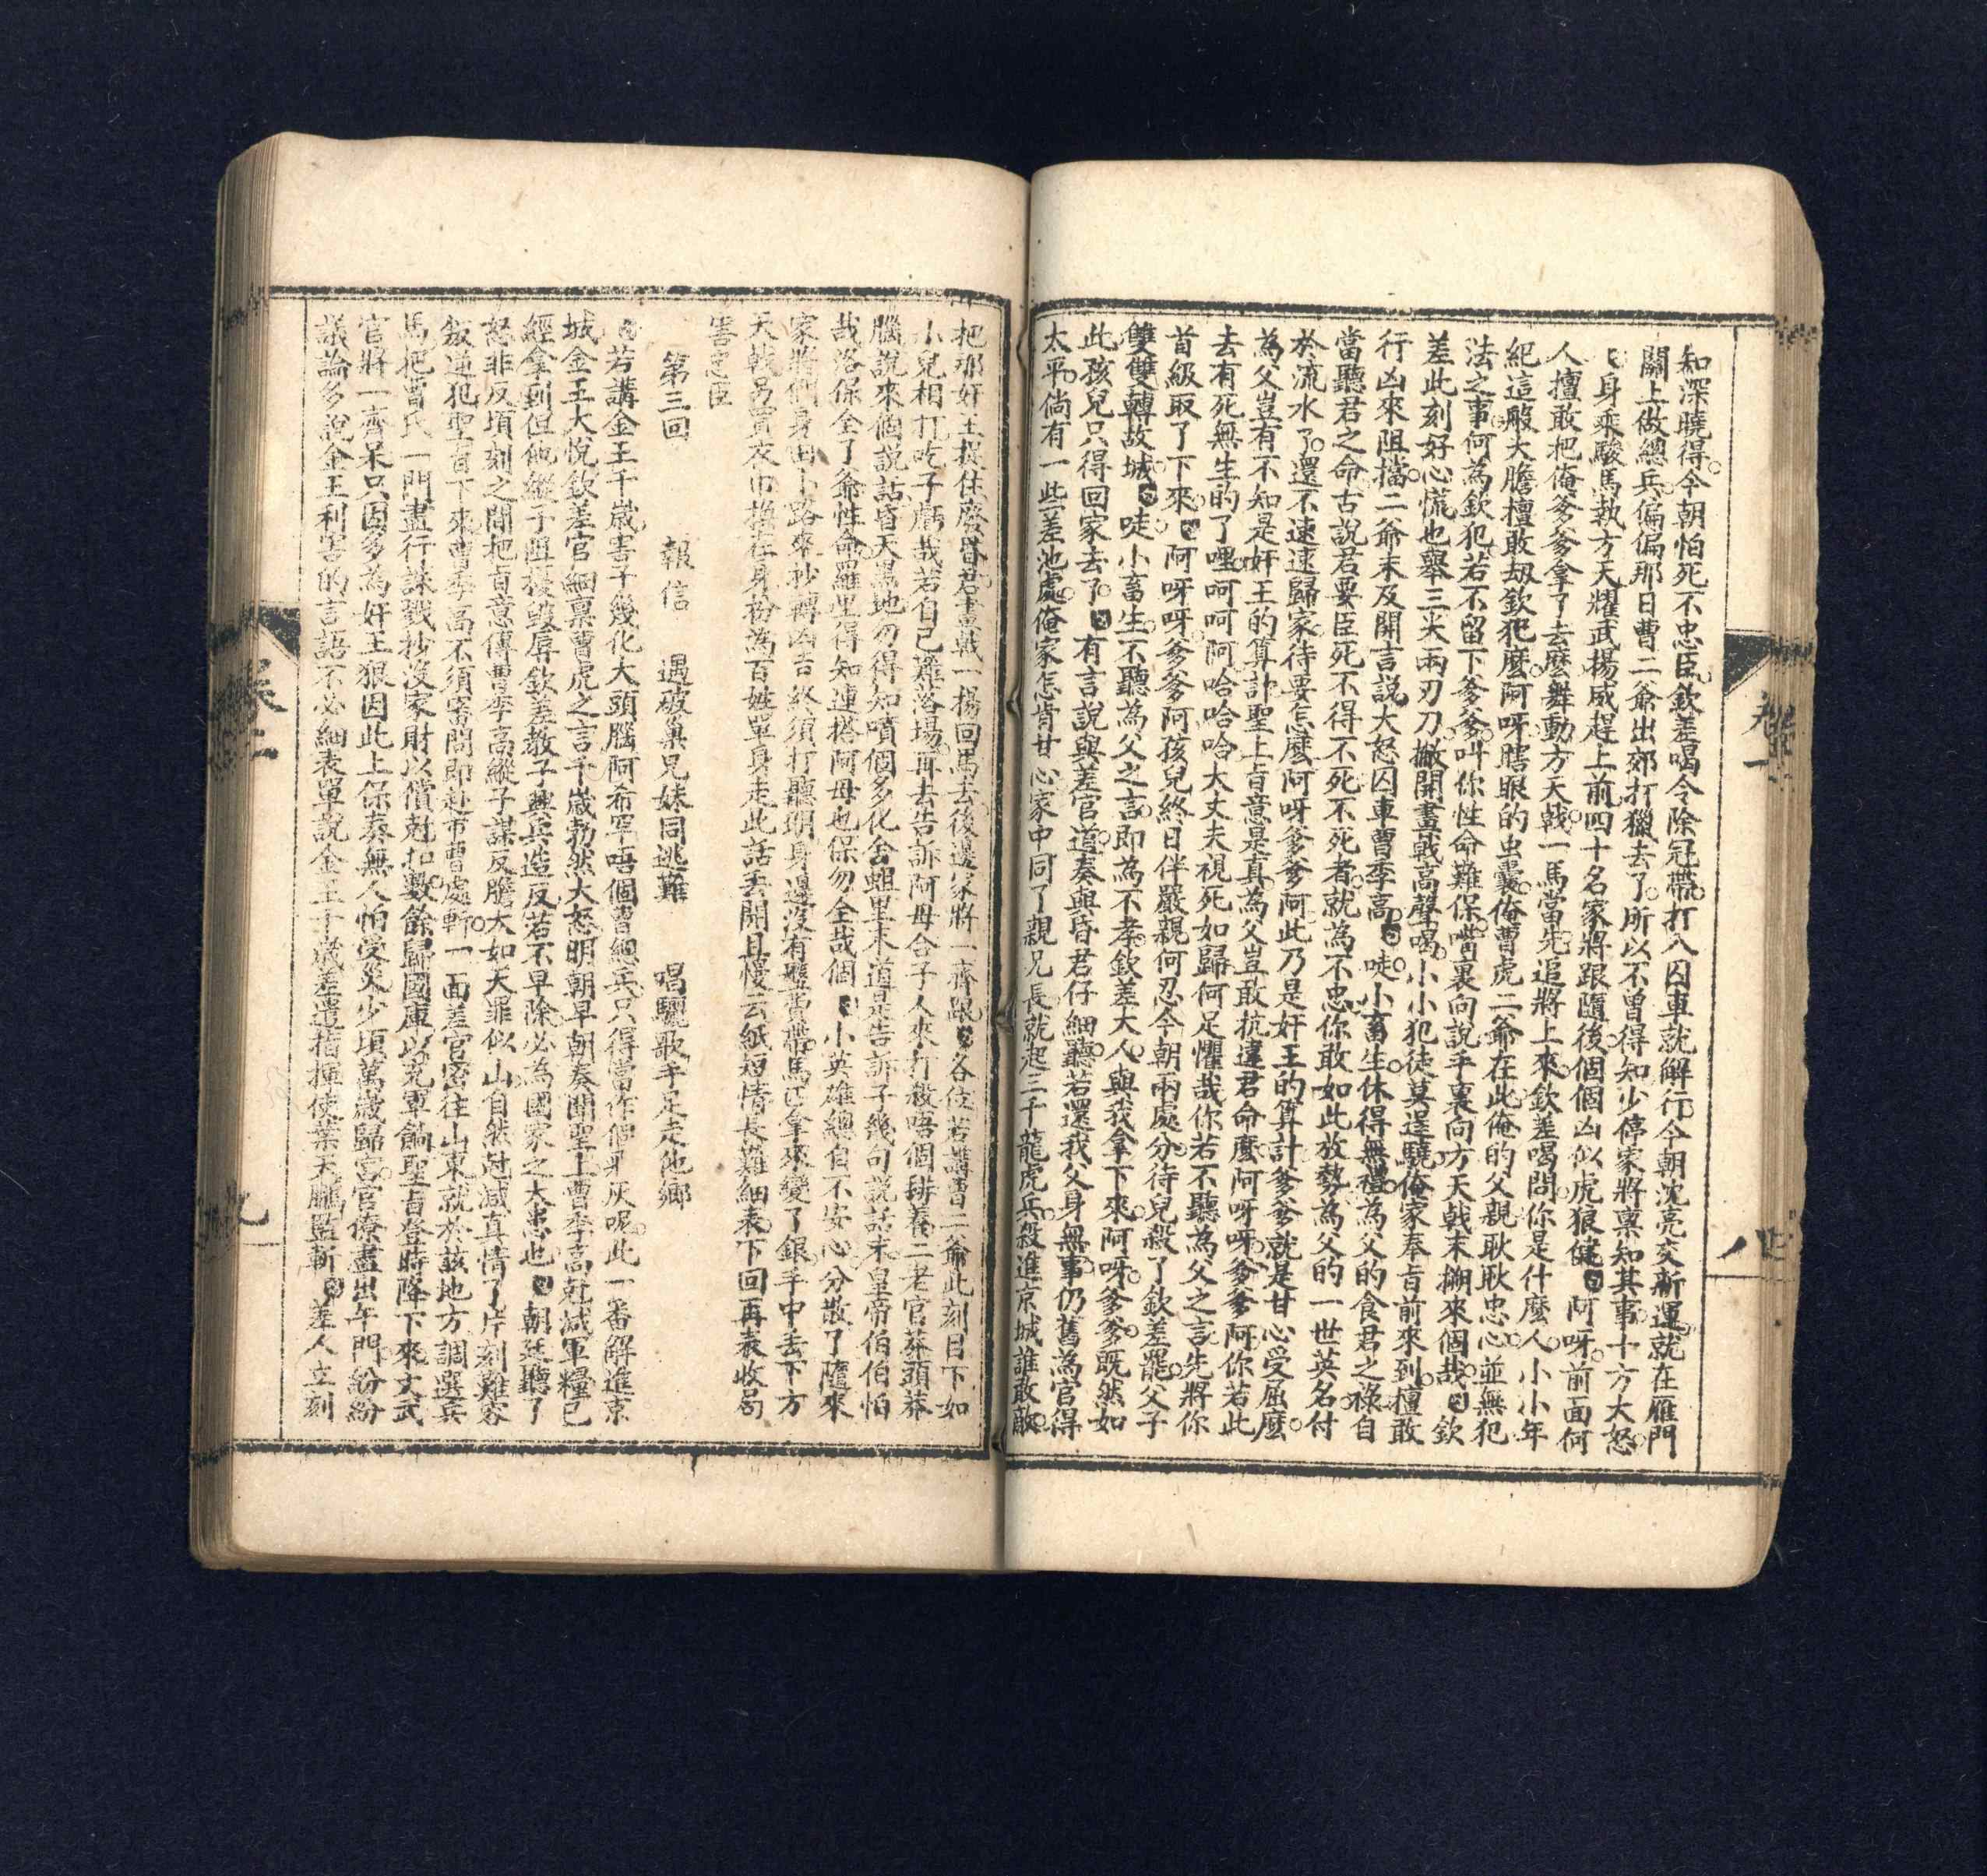 知深曉得今朝怕死不忠臣欽差喝令除冠帶打入囚車就解行今朝沈亮交新運就在雁門
關上做總兵偏偏那日曹二爺出郊打獵去了所以不曾得知少停家將稟知其事十方大怒
身乘駿馬執方天耀武揚威趕上前四十名家將跟隨後個個凶似虎狼健 阿呀前面何
人擅敢把俺爹爹拿了去麽舞動方天戟一馬當先追將上來欽差喝問你是什麽人小小年
紀這般大膽擅敢刼欽犯麽阿呀瞎眼的虫囊俺曹虎二爺在此俺的父親耿耿忠心並無犯
法之事何為欽犯若不留下爹爹叫你性命難保嘴裏向說手裏向方天戟末搠來個哉 欽
差此刻好心慌也舉三尖兩刃刀撇開畫戟高聲喝小小犯徒莫逞驍俺家奉旨前來到擅敢
行凶來阻擋二爺末及開言說大怒囚車曹李高 唗小畜生休得無禮為父的食君之祿自
當聽君之命古說君要臣死不得不死不死者就為不忠你敢如此放勢為父的一世英名付
於流水了還不速速歸家待要怎麽阿呀爹爹阿此乃是奸王的算計爹爹就是甘心受屈麽
為父豈有不知是奸王的算計聖上旨意是真為父豈敢抗違君命麽阿呀呀爹爹阿你若此
去有死無生的了哩呵呵呵阿哈哈哈大丈夫視死如歸何足懼哉你若不聽為父之言先將你
首級取了下來 阿呀呀爹爹阿孩兒終日伴嚴親何忍今朝兩處分待兒殺了欽差罷父子
雙雙轉故城 唗小畜生不聽為父之言即為不孝欽差大人與我拿下來阿呀爹爹既然如
此孩兒只得回家去了 有言說與差官道奏與昏君仔細聽若還我父身無事仍舊為官得
太平倘有一些差池處俺家怎肯甘心家中同了親兄長就起三千龍虎兵殺進京城誰敢敵
卷一
把那奸王捉住麽昏君畫戟一揚回馬去後邊家將一齊跟 各位若講曹二爺此刻目下如
小兒相打吃子虧哉若自己難落場再去告訴阿母合子人來打殺唔個琲養二老官莽頭莽
腦說來個說話昏天黑地勿得知噴個多化舍蛆里末道是告訴子幾句說話末皇帝伯伯怕
哉洛保全了爺性命羅里得知連搭阿母也保勿全哉個 小英雄總自不安心分散了隨來
家將們身由小路來抄轉凶吉終須打聽明身邊沒有盤費帶馬匹拿來變了銀手中丟下方
天戟另買衣巾換在身扮為百姓單身走此話丟開且慢云紙短情長難細表下回再表收局
害忠臣
第三回 報信 遇破巢兄妹同逃難 唱驪歌手足走他鄉
若講金王千歲害子幾化大頭腦阿希罕唔個曹總兵只得當作個牙灰呢此一番解進京
城金王大悅欽差官細稟曹虎之言千歲勃然大怒明朝早朝奏聞聖上曹李高尅減軍糧已
經拿到但他縱子阻擾毀辱欽差教子興兵造反若不早除必為國家之大患也 朝廷聽了
怒非反頃刻之間把旨意傳曹李高縱子謀反膽大如天罪似山自然尅減真情了片刻難容
叛逆犯聖旨下來曹李高不須審問即赴市曹處斬一面差官密往山東就於該地方調選兵
馬把曹氏一門盡行誅戮抄沒家財以償尅扣數餘歸國庫以充軍餉聖旨登時降下來文武
官將一齊呆只因多為奸王狠因此上保奏無人怕受災少頃萬歲歸宮官僚盡出午門紛紛
議論多說金王利害的言語不必細表單說金王千歲差遣指揮使葉天鵬監斬 差人立刻
卷二
九